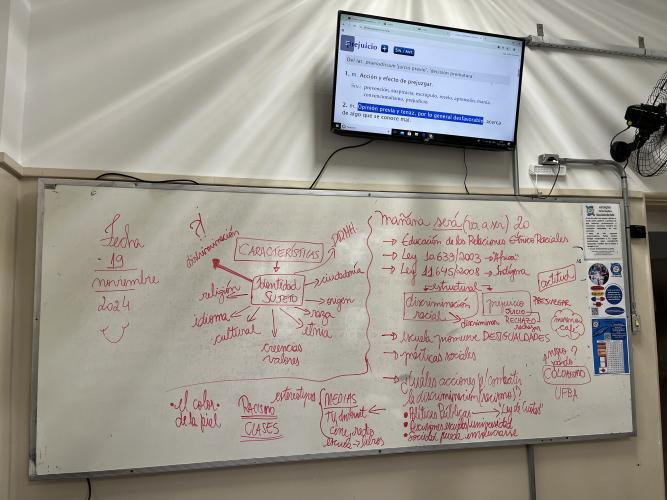 Prejuicio
Sin./Ant.
Del lat. praeiudicium 'juicio previo', 'decisión prematura'.
1. m. Acción y efecto de prejuzgar.
prevención, suspicacia, escrúpulo, recelo, aprensión, manía,
convencionalismo, prejudicio.
2. m. Opinión previa y tenaz, por lo general desfavorable, acerca
de algo que se conoce mal.
Fecha
19
noviembre
2024
discriminación
CARACTERÍSTICAS
DDHH.
Identidad
SUJETO
ciudadanía
religión
origen
idioma
raza
cultural
etnia
creencias
valores
• El color
de la piel
RACISMO
CLASES
estereotipos
MEDIAS
TV, internet
cine, radio
escuela → libros
mañana será (va a ser) 20
→ Educación de las Relaciones Étnico Raciales
→ Ley 10.639/2003 → "África"
→ Ley 11.645/2008 → Indígena
estructural
actitud
discriminación
racial
discriminar
prejuicio
JUICIO
RECHAZO
rechazar
→ escuela promueve DESIGUALDADES
→ prácticas sociales
negro?
pardo
COLORISMO
UFBA
→ ¿Cuáles acciones p/ combatir
la discriminación (racismo)?
• Políticas Públicas → "Ley de Cuotas"
• Discusiones escuelas/universidad
• Sociedad puede involucrarse